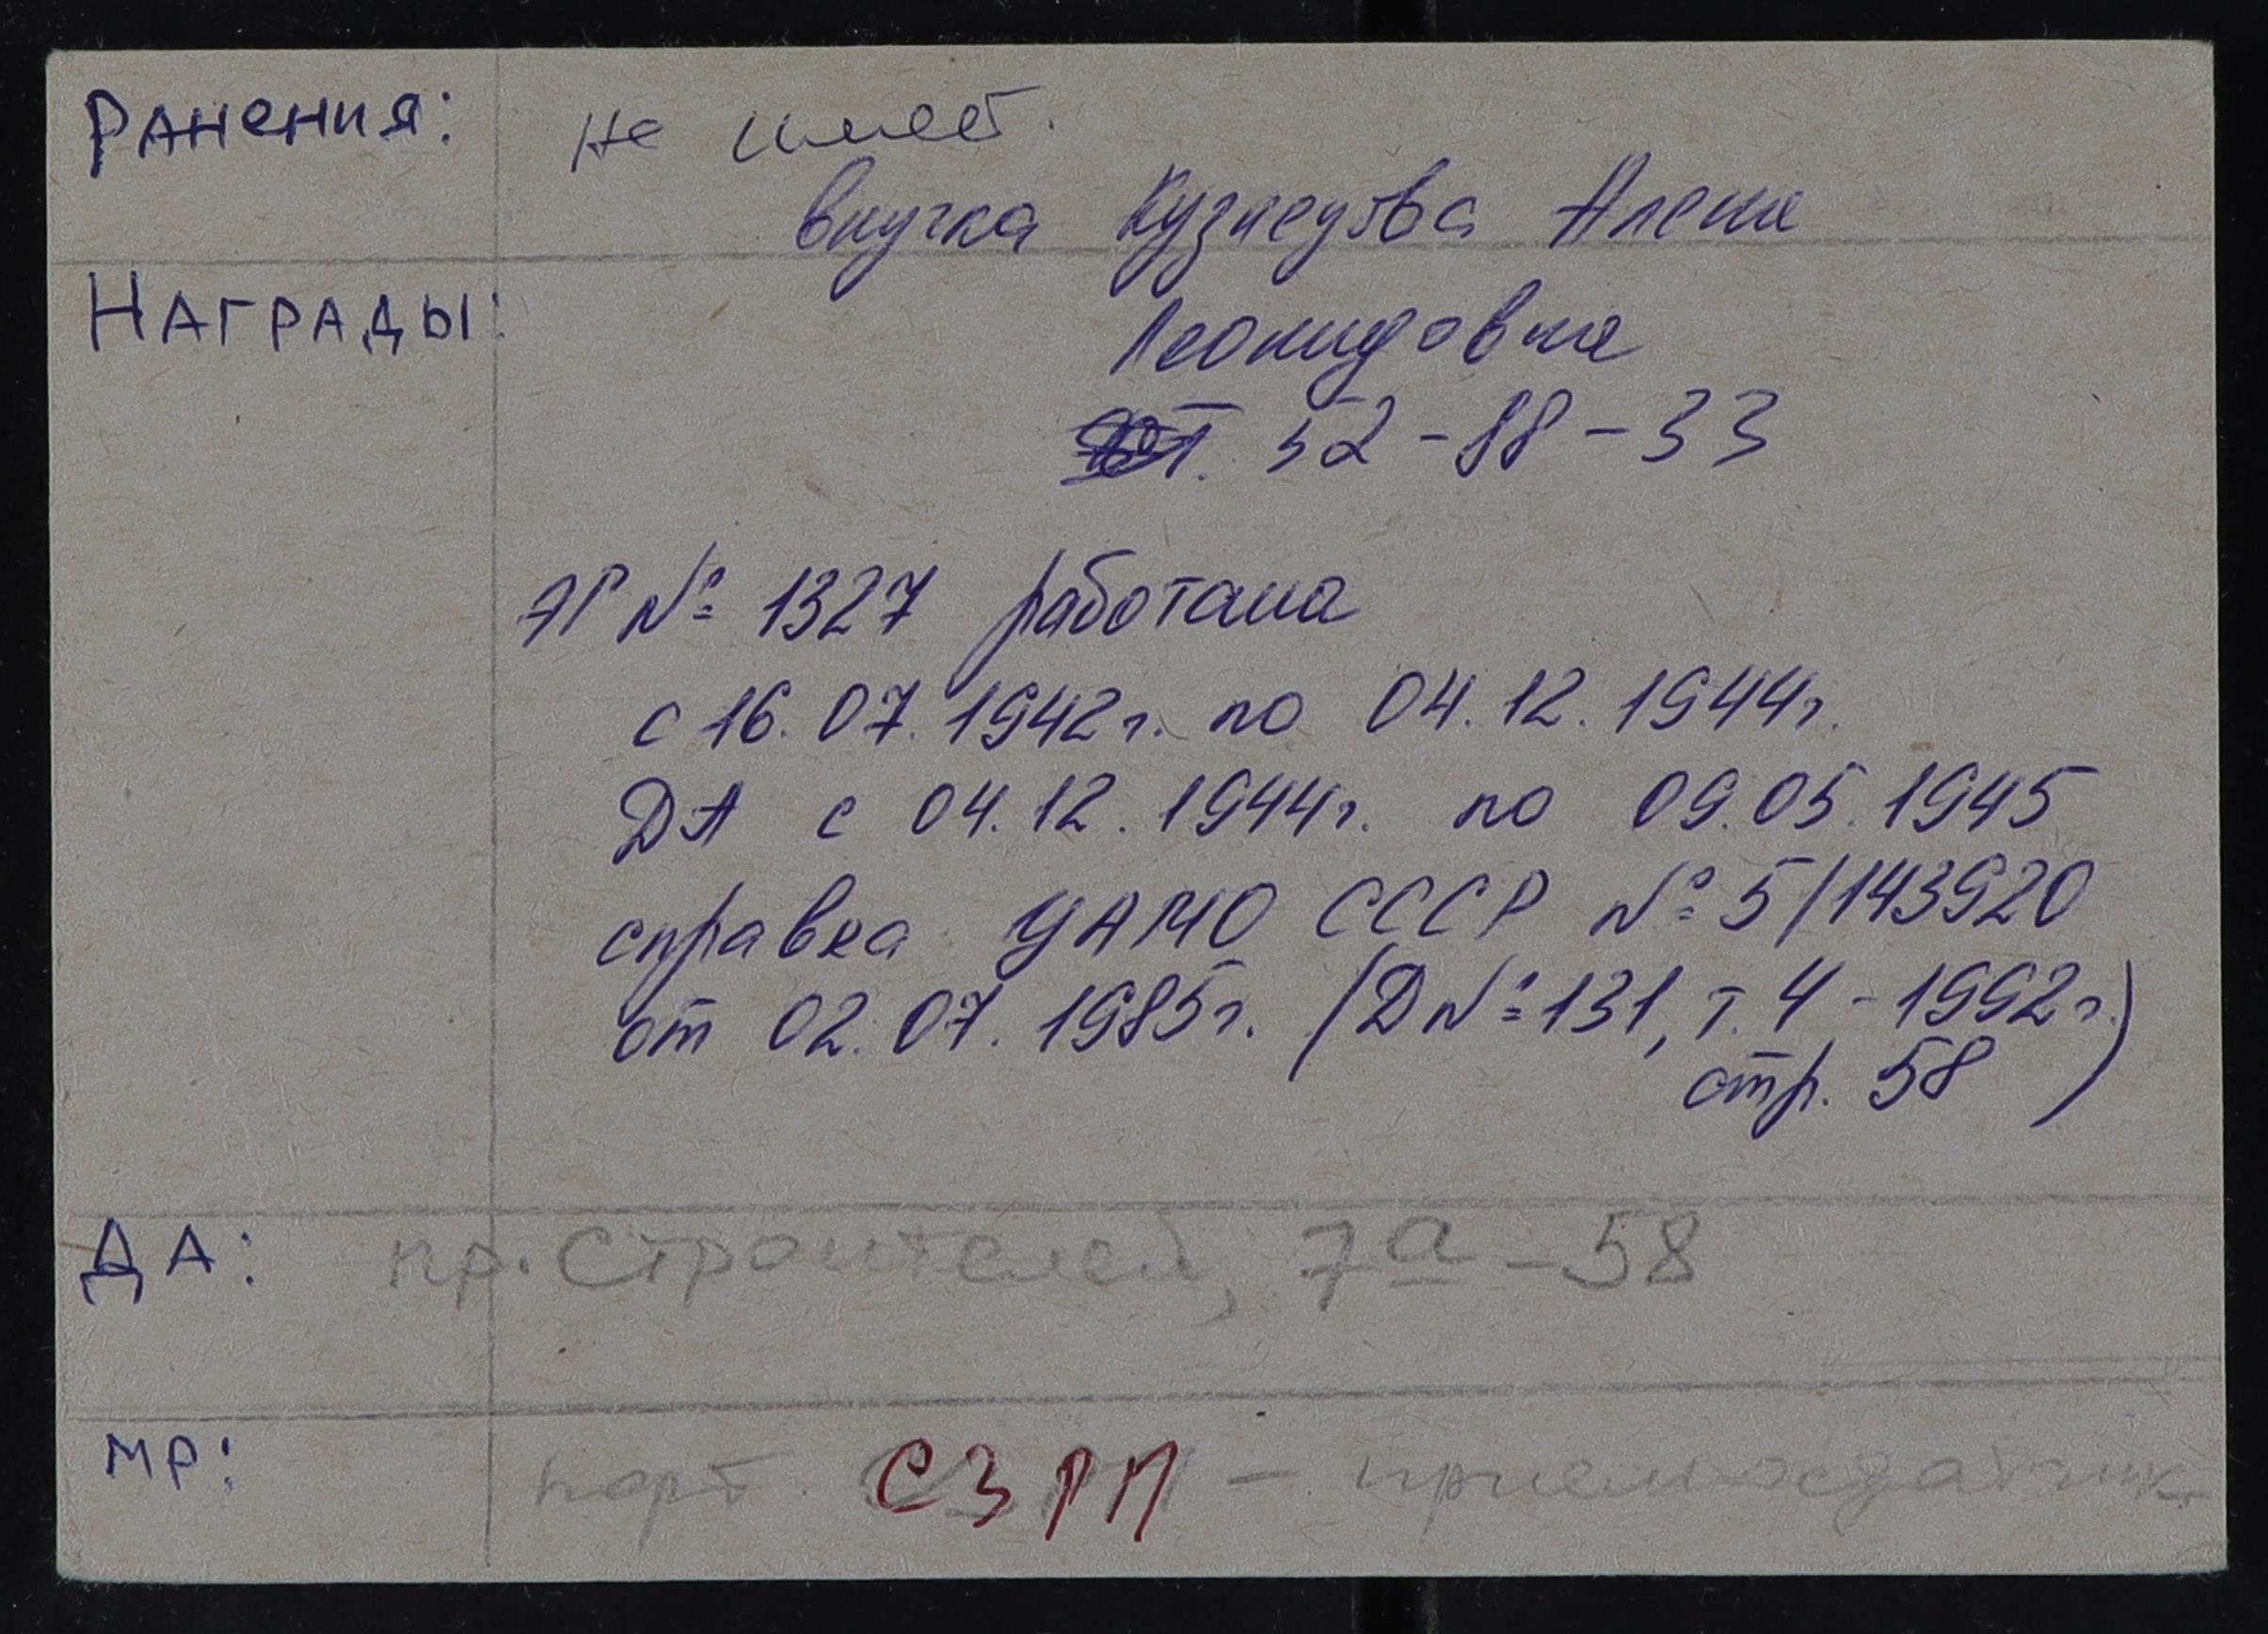 Ранения: не имеет.
внучка Кузнецова Алена
Награды:
Леонидовна
т. 52-88-33
ЭГ № 1327 работала
с 16.07.1942г. по 04.12.1944г.
ДА с 04.12.1944г. по 09.05.1945
справка ЦАМО СССР № 5/143920
от 02.07.1985г. (Д№131, т. 4 - 1992г.)
стр. 58
ДА: пр. Строителей, 7а - 58
МР: порт СЗРП - приемосдатчик